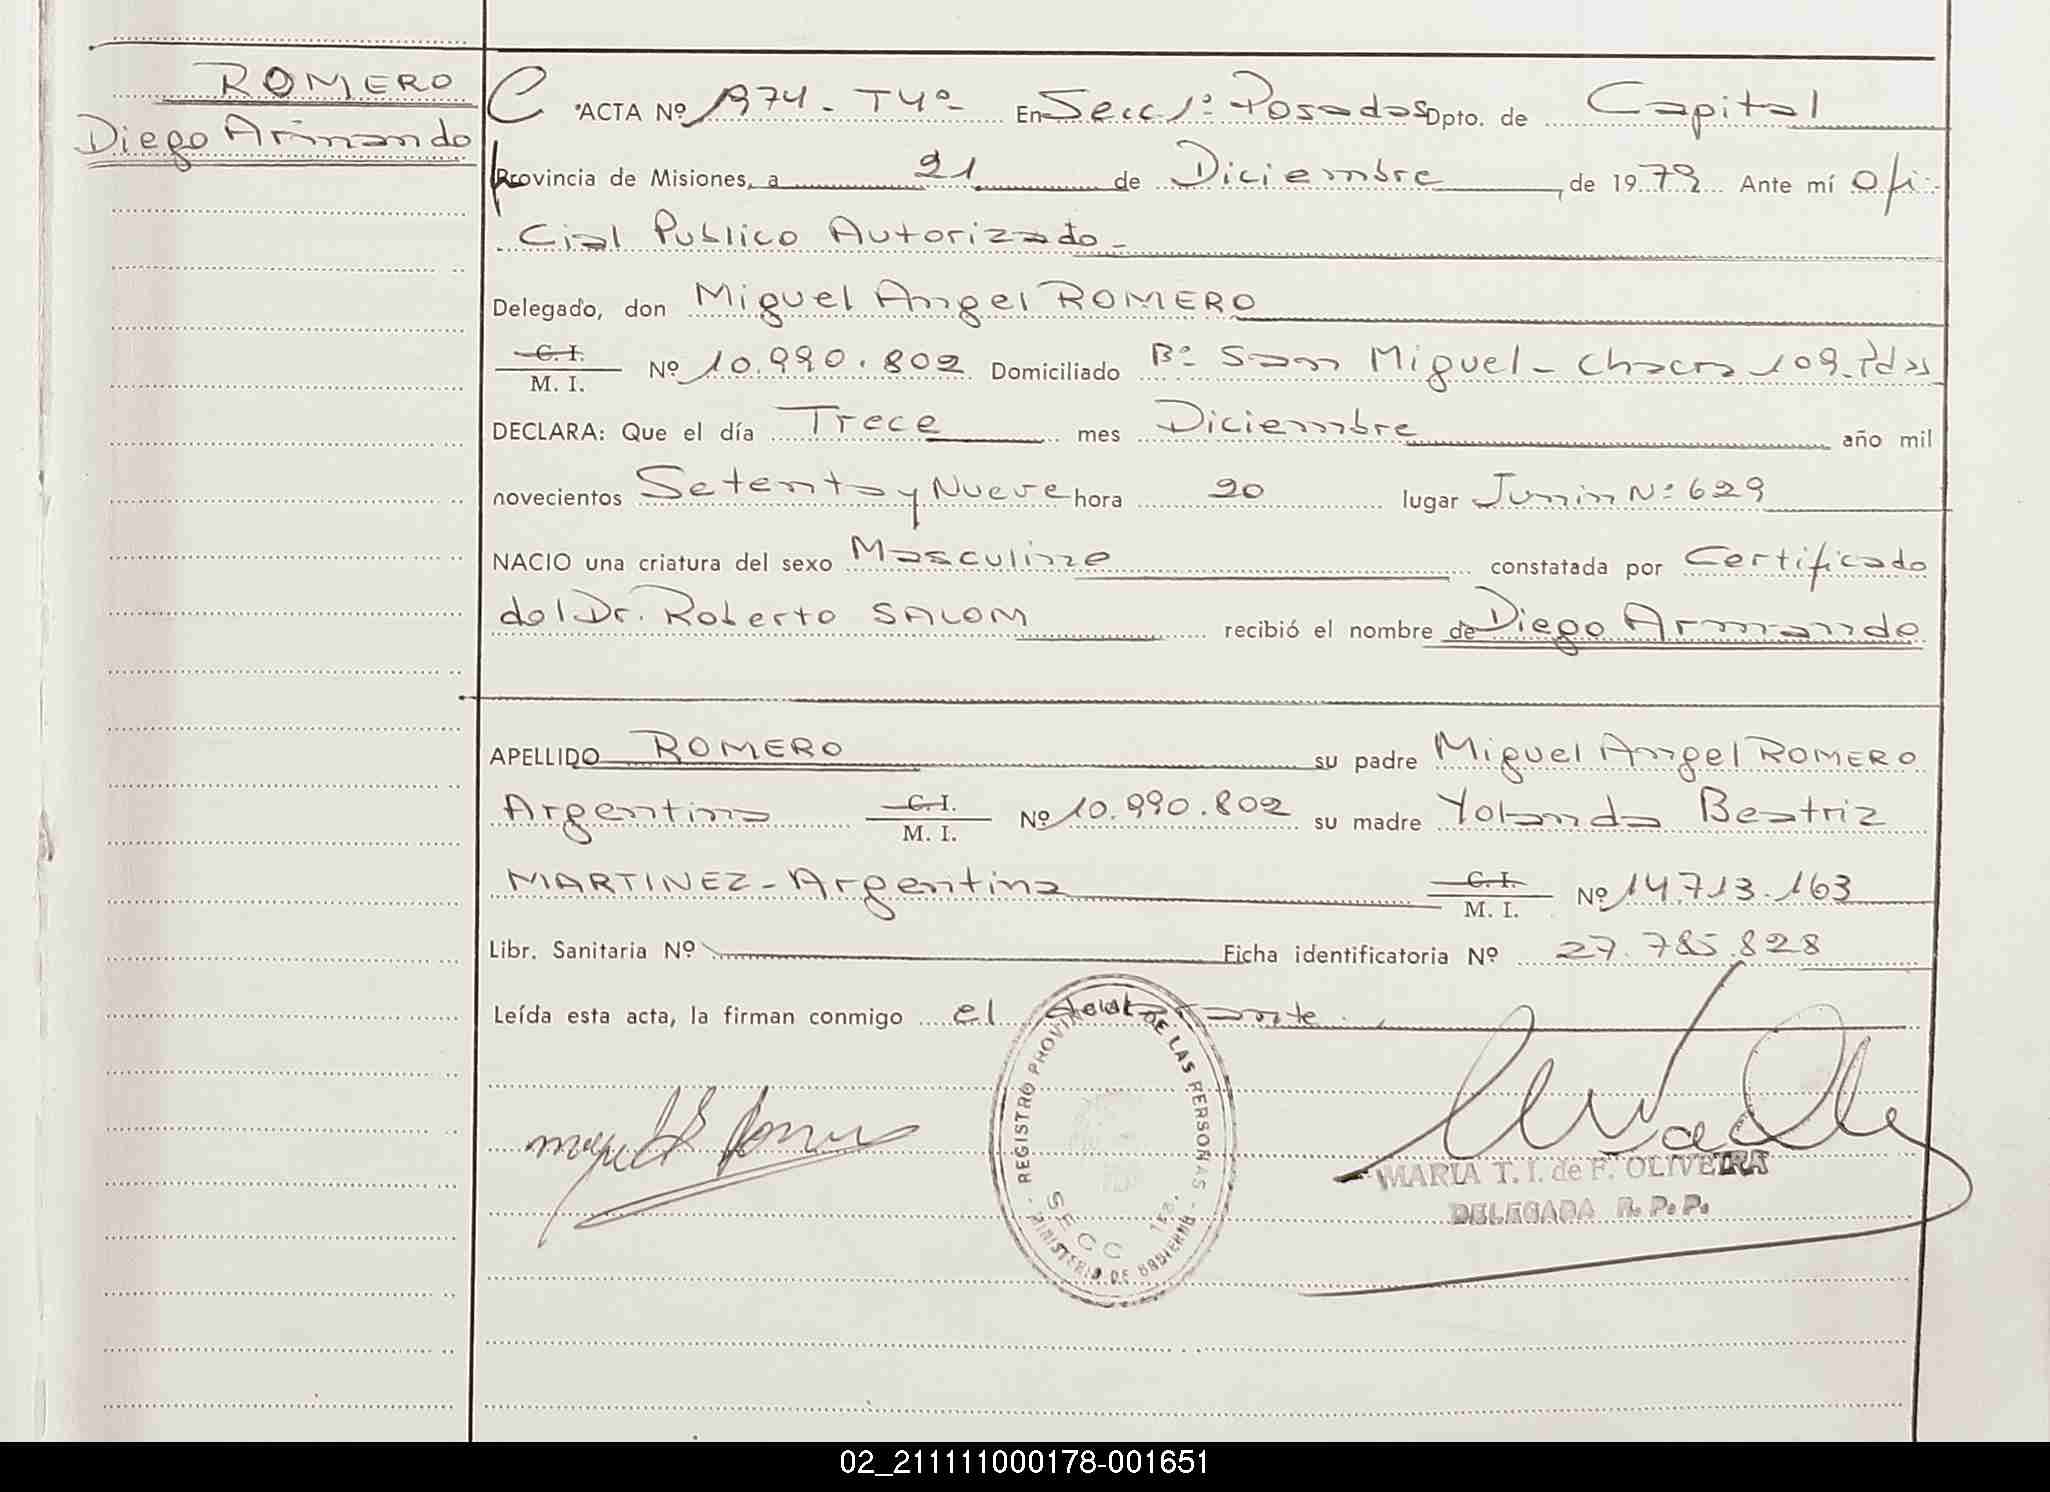 ROMERO
Diego Armando
C ACTA Nº 1974 - T4º - En Secc. 1ª Posadas Dpto. de Capital
Provincia de Misiones, a 21 de Diciembre de 1979 Ante mí Ofi-
cial Publico Autorizado -
Delegado, don Miguel Angel ROMERO
C. I.
M. I. Nº 10.990.802 Domiciliado Bº San Miguel - Chacra 109. Pdas
DECLARA: Que el día Trece mes Diciembre año mil
novecientos Setenta y Nueve hora 20 lugar Junin Nº 629
NACIO una criatura del sexo Masculino constatada por Certificado
del Dr. Roberto SALOM recibió el nombre de Diego Armando
APELLIDO ROMERO su padre Miguel Angel ROMERO
Argentino C. I.
M. I. Nº 10.990.802 su madre Yolanda Beatriz
MARTINEZ - Argentina C. I.
M. I. Nº 14.713.163
Libr. Sanitaria Nº Ficha identificatoria Nº 27.785.828
Leída esta acta, la firman conmigo el declarante.
REGISTRO PROVINCIAL DE LAS PERSONAS - MINISTERIO DE GOBIERNO -
SECC 1ra.
MARIA T. I. de F. OLIVEIRA
DELEGADA R. P. P.
02_211111000178-001651